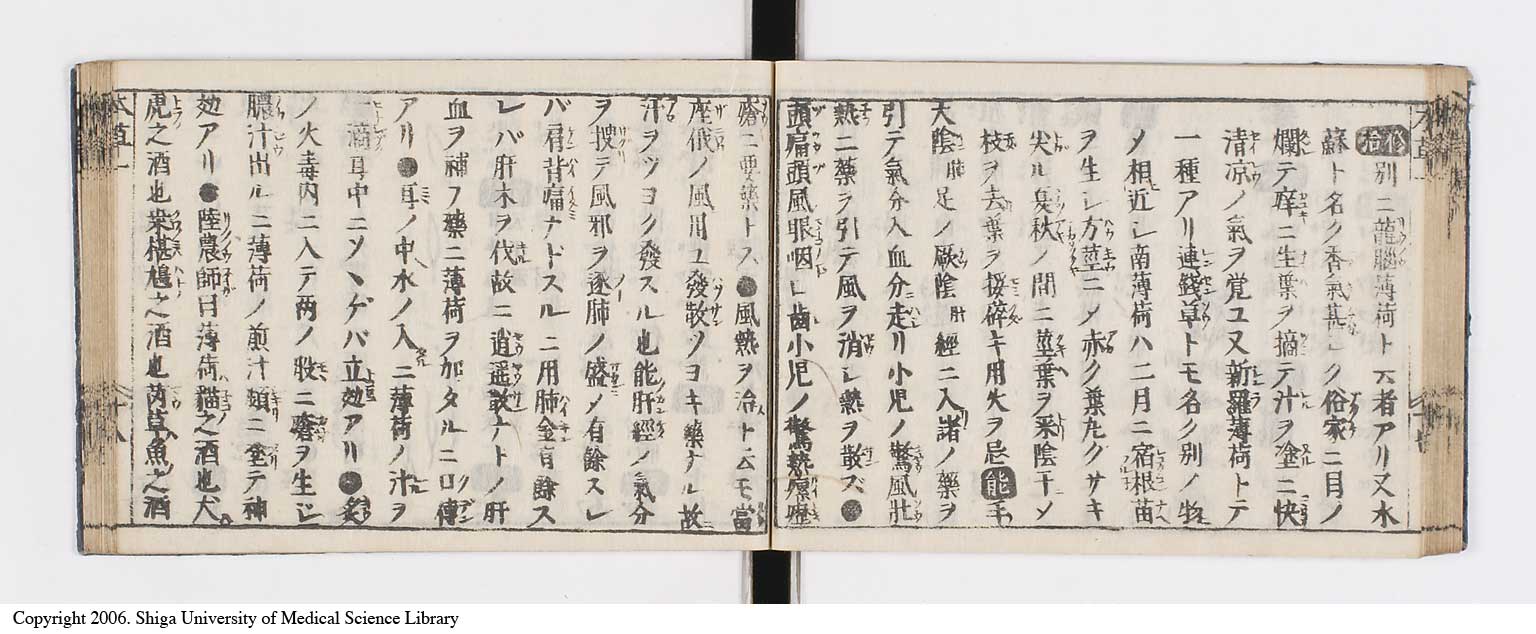 修治 別ニ龍腦薄荷ト云者アリ又水
蘇ト名ク香氣甚シク俗家ニ目ノ
爛テ痒ニ生葉ヲ摘テ汁ヲ塗ニ快
清凉ノ氣ヲ覚ユ又新羅薄荷トテ
一種アリ連錢草トモ名ク別ノ物
メ相近シ南薄荷ハ二月ニ宿根苗
ヲ生シ方莖ニメ赤ク葉丸クサキ
尖ル夏秋ノ間ニ莖葉ヲ采陰干メ
枝ヲ去葉ヲ援碎キ用火ヲ忌 能 手
大陰肺足ノ厥陰肝經ニ入諸ノ藥ヲ
引テ氣分入血分走リ小児ノ驚風壯
熱ニ藥ヲ引テ風ヲ消シ熱ヲ散ズ●
頭痛頭風眼咽シ歯小児ノ驚熱瘰癧
瘡ニ要藥トス●風熱ヲ治ト云モ當
座俄ノ風用ユ發散ツヨキ藥ナル故
汗ヲツヨク發スル也能肝經ノ氣分
ヲ捜テ風邪ヲ逐肺ノ盛メ有餘スレ
バ肩背痛ナドスルニ用肺金有餘ス
レバ肝木ヲ伐故ニ逍遥散ナトノ肝
血ヲ補フ藥ニ薄荷ヲ加タルニ口傳
アリ●耳ノ中水ノ入ニ薄荷ノ汁ヲ
一滴耳中ニソヽゲバ立効アリ●灸
ノ火毒内ニ入テ两ノ股ニ瘡ヲ生ジ
膿汁出ルニ薄荷ノ煎汁頻ニ塗テ神
効アリ●陸農師曰薄荷猫之酒也犬
虎之酒也桒椹鳩之酒也芮草魚之酒
Copyright 2006. Shiga University of Medical Science Library